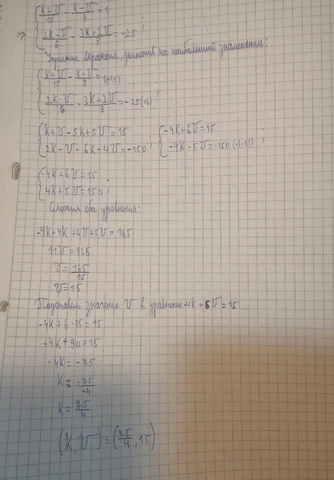 { (k+v)/15 - (k-v)/3 = 1
{ (2k-v)/6 - (3k+2v)/3 = -25
Упростим выражения, домножив на наибольший знаменатель:
{ (k+v)/15 - (k-v)/3 = 1(·15)
{ (2k-v)/6 - (3k+2v)/3 = -25(·6)
{ k+v-5k+5v=15 { -4k+6v=15
{ 2k-v-6k-4v=-150; { -4k-5v=-150 (·(-1));
{ -4k+6v=15
{ 4k+5v=150;
Сложим оба уравнения:
-4k+4k+6v+5v=165
11v=165
v=165/15
v=15
Подставим значение v в уравнение -4k+6v=15
-4k+6·15=15
-4k+90=15
-4k=-75
k=-75/-4
k=75/4
(k, v)=(75/4, 15)